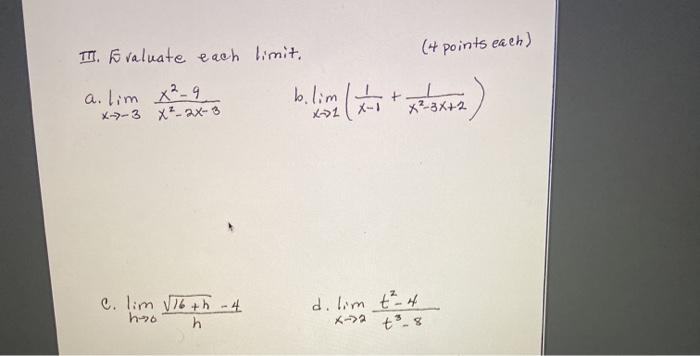 III. Evaluate each limit. (4 points each)
a. lim x→-3 (x²-9)/(x²-2x-3)
b. lim x→1 (1/(x-1) + 1/(x²-3x+2))
c. lim h→0 (√(16+h) - 4)/h
d. lim x→2 (t²-4)/(t³-8)